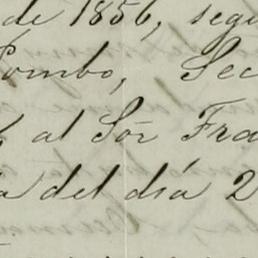 de 1856, segu
Pombo, Sec
al Sōr Fra
a del día 2